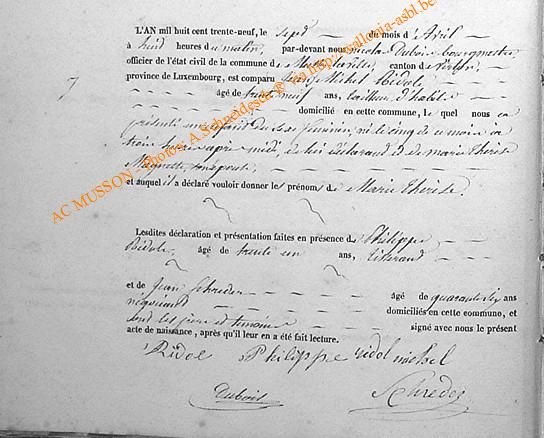 L'AN mil huit cent trente-neuf, le sept du mois d'Avril
à huit heures du matin, par-devant nous Nicolas Dubois bourgmestre
officier de l'état civil de la commune de canton de Virton,
province de Luxembourg, est comparu Jean Michel Ridole
âgé de trente neuf ans, tailleur d'habits
domicilié en cette commune, lequel nous a
présenté un enfant du sexe féminin, né le cinq de ce mois à
trois heures après midi, de lui déclarant et de Marie Therese
et auquel il a déclaré vouloir donner les prénoms de Marie Therese.
Lesdites déclaration et présentation faites en présence de Philippe
Ridole, âgé de trente un ans,
et de Jean Schreder âgé de quarante six ans
négociant domiciliés en cette commune, et
sont les père et témoins signé avec nous le présent
acte de naissance, après qu'il leur en a été fait lecture.
Ridol Philippe ridol michel
Dubois Schreder
AC MUSSON - Photos: A.Schneidesch © via http://wallonia-asbl.be